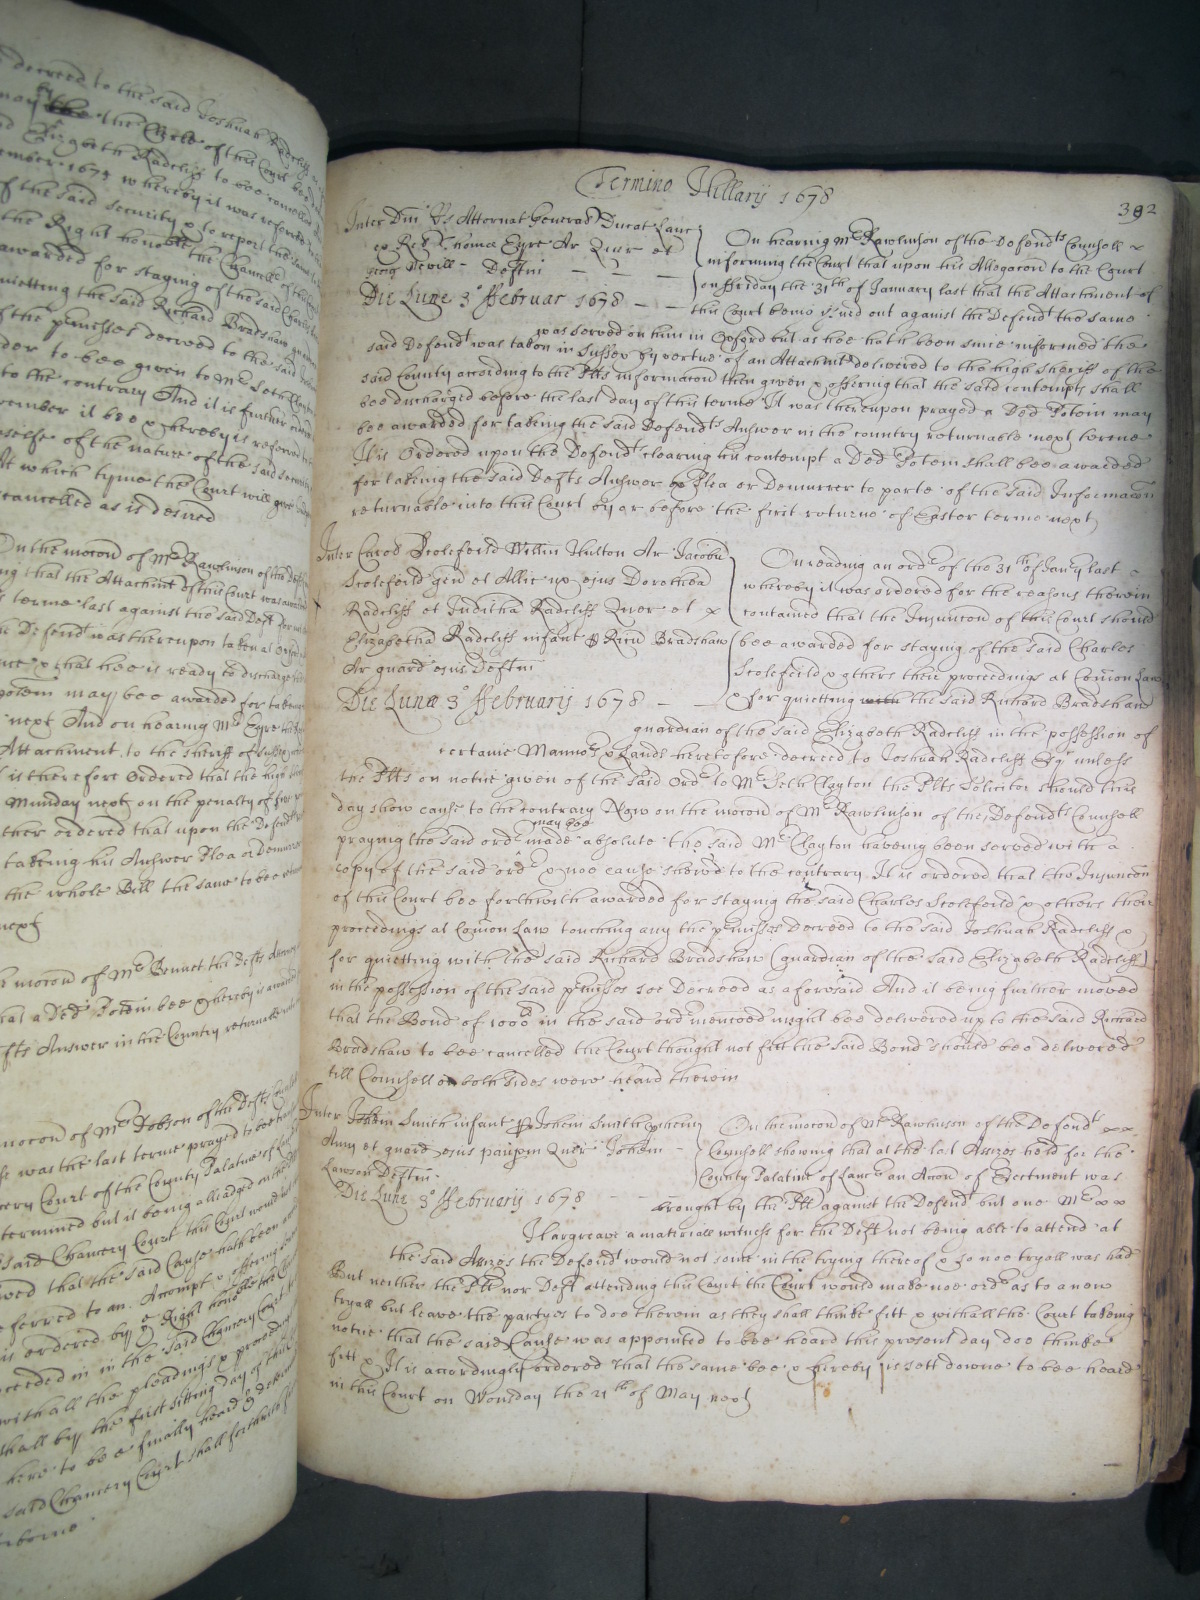 decreed to the said Joshuah Radcliff
may by the the Clerke of this Court bee
Elizabeth Radcliff to bee cancelled
ember 1677 whereby it was referred
of the said security & to report the same
the Right honoble the Chancellr of the
awarded for staying of the said Charles
quietting the said Richard Bradshaw
of the pmisses decreed to the said
der to bee given to Mr Seth Clayton
to the contrary And it is further ordered
vember it bee & hereby is referred
selfe of the nature of the said security
At which tyme the Court will give
cancelled as is desired
On the mocon of Mr Rawlinson of the Defts
ng that the Attachmt of this Court was awarded
terme last against the said Deft for
he Defendt was thereupon taken at Oxford
nce & that hee is ready to discharge
potem may bee awarded for takeing
next And on hearing Mr Eyre the
Attachment to the sheriff of Sussex
is therefore Ordered that the high
Munday next on the penalty of
ther ordered that upon the Defendts
taking his Answer Plea or Demurrer
the whole Bill the same to bee
next
mocon of Mr Bennet the Defts Attorney
hat a Ded Potem bee & hereby is awarded
fts Answer in the Country returnable
mocon of Mr Dobson of the Defts Councell
was the last terme prayed to bee
cery Court of the County Palatine of
termined but it being alleadged on the
said Chancery Court this Court would
wed that the said Cause hath been
eferred to an Accompt & offering
is ordered by ye Right honoble the
oceeded in in the said Chancery Court
with all the pleadings & proceedings
shall by the first sitting day of this
here to be a finally heard & determined
said Chancery Court shall forthwith
Termino Hillarij 1678
392
Inter Dm Rs Attornat Generat Ducat Lanc
ex Relne Thomae Eyre Ar Quer et
Georg Nevill - Deftm
Die Lune 3o ffebruar 1678
On hearing Mr Rawlinson of the Defendts Counsell &
informing the Court that upon his Allegacon to the Court
on ffriday the 31th of January last that the Attachment of
this Court being issued out against the Defendt the same
was served on him in Oxford but as hee hath been since informed the
said Defendt was taken in Sussex by vertue of an Attachmt delivered to the high Sheriff of the
said County according to the Plts informacon then given & offering that the said contempts shall
bee discharged before the last day of this terme It was thereupon prayed a Ded Potem may
bee awarded for takeing the said Defendts Answer in the country returnable next terme
It is Ordered upon the Defendt clearing his contempt a Ded Potem shall bee awarded
for taking the said Defts Answer Plea or Demurrer to parte of the said Informacon
returnable into this Court by or before the first returne of Easter terme next
Inter Carod Scolefeild Willm Hulton Ar Jacobu
Scolefeild gen et Alic ux ejus Dorothea
Radcliff et Juditha Radcliff Quer et &
Elizabetha Radcliff infant p Ricu Bradshaw
Ar guard ejus Deftm
Die Lunae 3o ffebruarij 1678
On reading an ordr of the 31th of Janry last
whereby it was ordered for the reasons therein
contained that the Injuncon of this Court should
bee awarded for staying of the said Charles
Scolefeild & others their proceedings at Comon Law
& for quietting with the said Richard Bradshaw
guardian of the said Elizabeth Radcliff in the possession of
certaine Mannors & Lands heretofore decreed to Joshuah Radcliff Esqr unless
the Plts on notice given of the said Ordr to Mr Seth Clayton the Plts Solicitor should this
day show cause to the contrary Now on the mocon of Mr Rawlinson of the Defendts Counsell
praying the said ordr may bee made absolute the said Mr Clayton haveing been served with a
copy of the said ordr & noe cause shewed to the contrary It is ordered that the Injuncon
of this Court bee forthwith awarded for staying the said Charles Scolefeild & others their
proceedings at Comon Law touching any the pmisses Decreed to the said Joshuah Radcliff &
for quietting with the said Richard Bradshaw (guardian of the said Elizabeth Radcliff)
in the possession of the said pmisses soe Decreed as aforesaid And it being further moved
that the Bond of 1000l in the said ordr mencoed might bee delivered up to the said Richard
Bradshaw to bee cancelled the Court thought not fitt the said Bond should bee delivered
till Counsell on both sides were heard therein
Inter Johem Smith infant p Johem Smith
Avm et guard ejus Quer Johem
Lawson Deftm
Die Lune 3o ffebruarij 1678
On the mocon of Mr Rawlinson of the Defendt
Counsell showing that at the last Assizes held for the
County Palatine of Lancr an Accon of Ejectment was
brought by the Plt against the Defendt but one Mr
Hargreave a materiall witness for the Deft not being able to attend at
the said Assizes the Defend would not joine in the trying thereof & so noe tryall was had
But neither the Plt nor Deft attending this Court the Court would make noe ordr as to a new
tryall but leave the partyes to doe therein as they shall thinke fitt & withall the Court takeing
notice that the said Cause was appointed to bee heard this present day doe thinke
fitt & It is accordingly ordered that the same bee & hereby is sett downe to bee heard
in this Court on Monday the 21th of May next